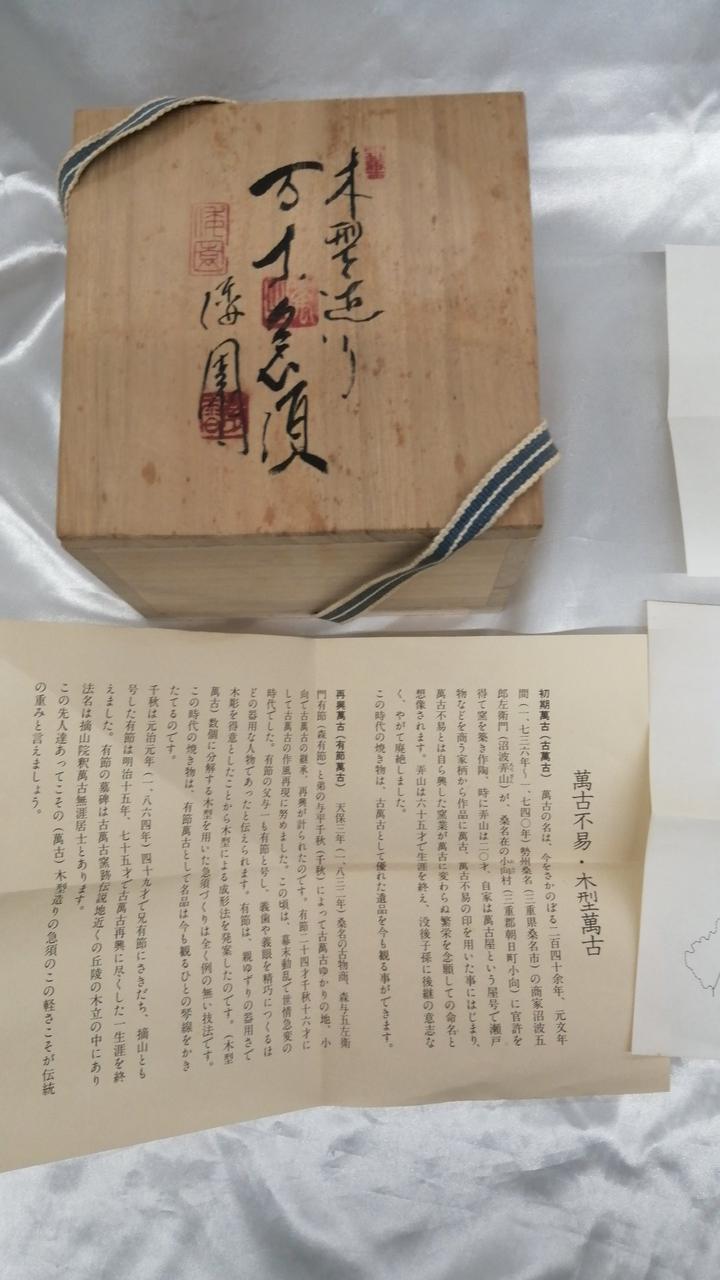 木型造り
万古急須
萬古不易・木型萬古
初期萬古（古萬古） 萬古の名は、今をさかのぼる二百四十余年、元文年
間（一、七三六年〜一、七四〇年）勢州桑名（三重県桑名市）の商家沼波五
郎左衛門（沼波弄山）が、桑名在の小向村（三重郡朝日町小向）に官許を
得て窯を築き作陶、時に弄山は二〇才、自家は萬古屋という屋号で瀬戸
物などを商う家柄から作品に萬古、萬古不易の印を用いた事にはじまり、
萬古不易とは自ら興した窯業が萬古に変わらぬ繁栄を念願しての命名と
想像されます。弄山は六十五才で生涯を終え、没後子孫に後継の意志な
く、やがて廃絶しました。
この時代の焼き物は、古萬古として優れた遺品を今も観る事ができます。
再興萬古（有節萬古） 天保三年（一、八三二年）桑名の古物商、森与五左衛
門有節（森有節）と弟の与平千秋（千秋）によって古萬古ゆかりの地、小
向で古萬古の継承、再興が計られたのです。有節二十四才千秋十六才に
して古萬古の作風再現に努めました。この頃は、幕末動乱で世情急変の
時代でした。有節の父与一も有節と号し、義歯や義眼を精巧につくるは
どの器用な人物であったと伝えられます。有節は、親ゆずりの器用さで
木彫を得意としたことから木型による成形法を発案したのです。（木型
萬古）数個に分解する木型を用いた急須づくりは全く例の無い技法です。
この時代の焼き物は、有節萬古として名品は今も観るひとの琴線をかき
たてるのです。
千秋は元治元年（一、八六四年）四十九才で兄有節にさきだち、摘山とも
号した有節は明治十五年、七十五才で古萬古再興に尽くした一生涯を終
えました。有節の墓碑は古萬古窯跡伝説地近くの丘陵の木立の中にあり
法名は摘山院釈萬古無涯居士とあります。
この先人達あってこその（萬古）木型造りの急須のこの軽さこそが伝統
の重みと言えましょう。